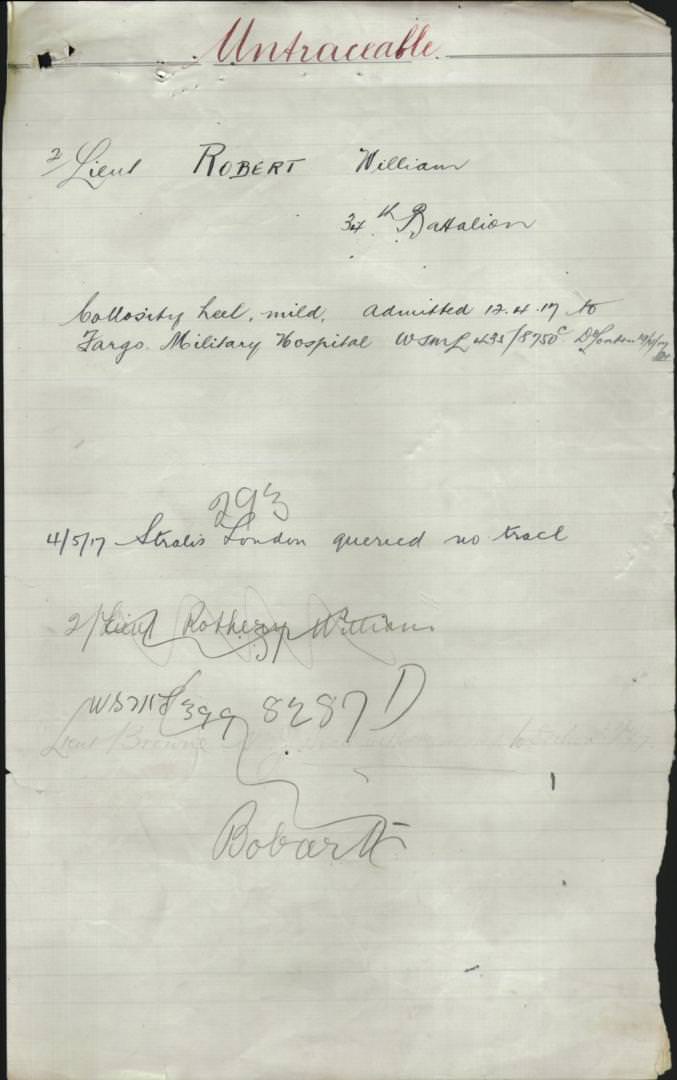 Untraceable
2/Lieut ROBERT William
34th Battalion
Collosity heel, mild. Admitted 12.4.17 to
Fargo. Military Hospital WSML 435/8750c D/London
293
4/5/17 Stralis London queried no trace
2/Lieut Rothery William
399 8287 D
Lieut Browne
Bobart